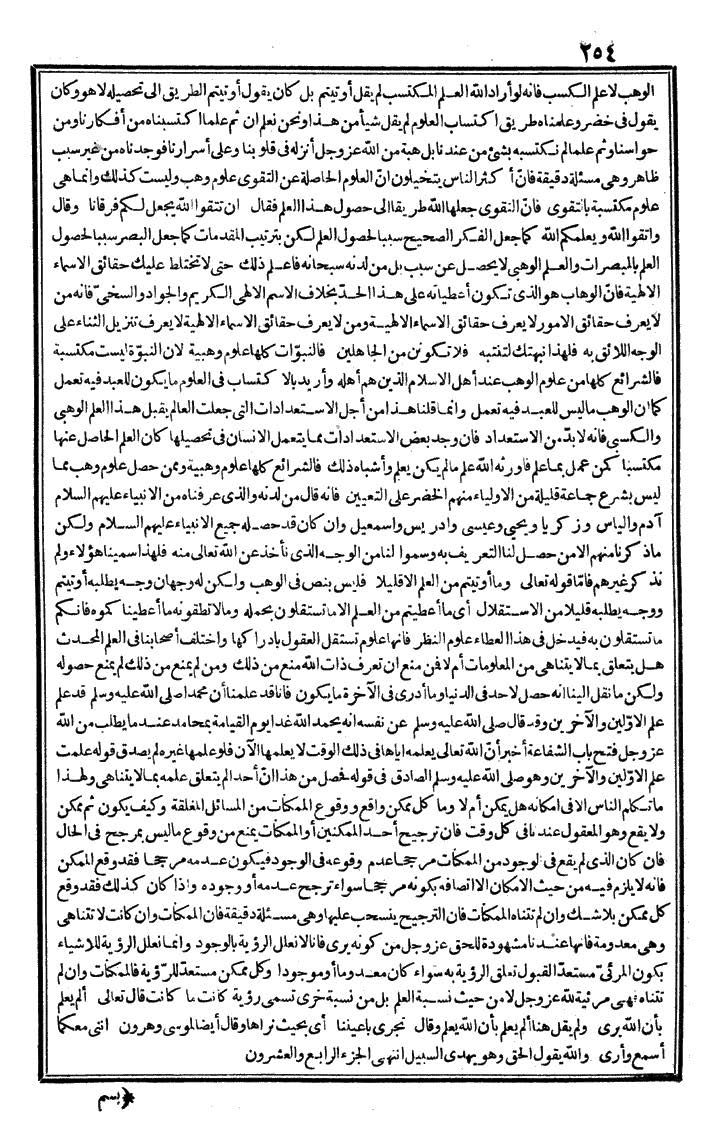 ٢٥٤
الوهب لا علم الكسب فانه لو أراد الله العلم المكتسب لم يقل أوتيتم بل كان يقول أوتيتم الطريق الى تحصيله لا هو وكان
يقول فى خضر وعلمناه طريق اكتساب العلوم لم يقل شيأ من هذا ونحن نعلم ان ثم علما اكتسبناه من أفكارنا ومن
حواسنا وثم علما لم نكتسبه بشئ من عندنا بل هبة من الله عز وجل أنزله فى قلوبنا وعلى أسرارنا فوجدناه من غير سبب
ظاهر وهى مسئلة دقيقة فان أكثر الناس يتخيلون ان العلوم الحاصلة عن التقوى علوم وهب وليست كذلك وانما هى
علوم مكتسبة بالتقوى فان التقوى جعلها الله طريقا الى حصول هذا العلم فقال ان تتقوا الله يجعل لكم فرقانا وقال
واتقوا الله ويعلمكم الله كما جعل الفكر الصحيح سببا لحصول العلم لكن بترتيب المقدمات كما جعل البصر سببا لحصول
العلم بالمبصرات والعلم الوهبى لا يحصل عن سبب بل من لدنه سبحانه فاعلم ذلك حتى لا تختلط عليك حقائق الاسماء
الالهية فان الوهاب هو الذى تكون أعطياته على هذا الحد بخلاف الاسم الالهى الكريم والجواد والسخى فانه من
لا يعرف حقائق الامور لا يعرف حقائق الاسماء الالهية ومن لا يعرف حقائق الاسماء الالهية لا يعرف تنزيل الثناء على
الوجه اللائق به فلهذا نبهتك لتنتبه فلا تكونن من الجاهلين فالنبوات كلها علوم وهبية لان النبوة ليست مكتسبة
فالشرائع كلها من علوم الوهب عند أهل الاسلام الذين هم أهله وأريد بالاكتساب فى العلوم ما يكون للعبد فيه تعمل
كما ان الوهب ما ليس للعبد فيه تعمل وانما قلنا هذا من أجل الاستعدادات التى جعلت العالم يقبل هذا العلم الوهبى
والكسبى فانه لا بد من الاستعداد فان وجد بعض الاستعدادات مما يتعمل الانسان فى تحصيلها كان العلم الحاصل عنها
مكتسبا كمن عمل بما علم فاورثه الله علم ما لم يكن يعلم وأشباه ذلك فالشرائع كلها علوم وهبية وممن حصل علوم وهب مما
ليس بشرع جماعة قليلة من الاولياء منهم الخضر على التعيين فانه قال من لدنه والذى عرفناه من الانبياء عليهم السلام
آدم والياس وزكريا ويحيى وعيسى وادريس واسمعيل وان كان قد حصله جميع الانبياء عليهم السلام ولكن
ما ذكرنا منهم الا من حصل لنا التعريف به وسموا لنا من الوجه الذى نأخذ عن الله تعالى منه فلهذا سمينا هؤلاء ولم
نذكر غيرهم فاما قوله تعالى وما أوتيتم من العلم الا قليلا فليس بنص فى الوهب ولكن له وجهان وجه يطلبه أوتيتم
ووجه يطلبه قليلا من الاستقلال أى ما أعطيتم من العلم الا ما تستقلون بحمله وما لا تطقونه ما أعطينا كموه فانكم
ما تستقلون به فيدخل فى هذا العطاء علوم النظر فانها علوم تستقل العقول بادراكها واختلف أصحابنا فى العلم المحدث
هل يتعلق بما لا يتناهى من المعلومات أم لا فمن منع ان تعرف ذات الله منع من ذلك ومن لم يمنع من ذلك لم يمنع حصوله
ولكن ما نقل الينا انه حصل لاحد فى الدنيا وما أدرى فى الآخرة ما يكون فانا قد علمنا أن محمدا صلى الله عليه وسلم قد علم
علم الاولين والآخرين وقد قال صلى الله عليه وسلم عن نفسه انه يحمد الله غدا يوم القيامة بمحامد عند ما يطلب من الله
عز وجل فتح باب الشفاعة أخبر أن الله تعالى يعلمه اياها فى ذلك الوقت لا يعلمها الآن فلو علمها غيره لم يصدق قوله علمت
علم الاولين والآخرين وهو صلى الله عليه وسلم الصادق فى قوله فحصل من هذا ان أحدا لم يتعلق علمه بما لا يتناهى ولهذا
ما تكلم الناس الا فى امكانه هل يمكن أم لا وما كل ممكن واقع ووقوع الممكنات من المسائل المغلقة وكيف يكون ثم ممكن
ولا يقع وهو المعقول عندنا فى كل وقت فان ترجيح أحد الممكنين أو الممكنات يمنع من وقوع ما ليس بمرجح فى الحال
فان كان الذى لم يقع فى الوجود من الممكنات مرجحا عدم وقوعه فى الوجود فيكون عدمه مرجحا فقد وقع الممكن
فانه لا يلزم فيه من حيث الامكان الا اتصافه بكونه مرجحا سواء ترجح عدمه أو وجوده واذا كان كذلك فقد وقع
كل ممكن بلا شك وان لم تتناه الممكنات فان الترجيح ينسحب عليها وهى مسئلة دقيقة فان الممكنات وان كانت لا تتناهى
وهى معدومة فانها عندنا مشهودة للحق عز وجل من كونه يرى فانا لا نعلل الرؤية بالوجود وانما نعلل الرؤية للاشياء
بكون المرئى مستعد القبول تعلق الرؤية به سواء كان معدوما أو موجودا وكل ممكن مستعد للرؤية فالممكنات وان لم
تتناه فهى مرئية لله عز وجل لا من حيث نسبة العلم بل من نسبة أخرى تسمى رؤية كانت ما كانت قال تعالى ألم يعلم
بأن الله يرى ولم يقل هنا ألم يعلم بأن الله يعلم وقال تجرى باعيننا أى بحيث نراها وقال أيضا لموسى وهرون اننى معكما
أسمع وأرى والله يقول الحق وهو يهدى السبيل انتهى الجزء الرابع والعشرون
﴿ بسم